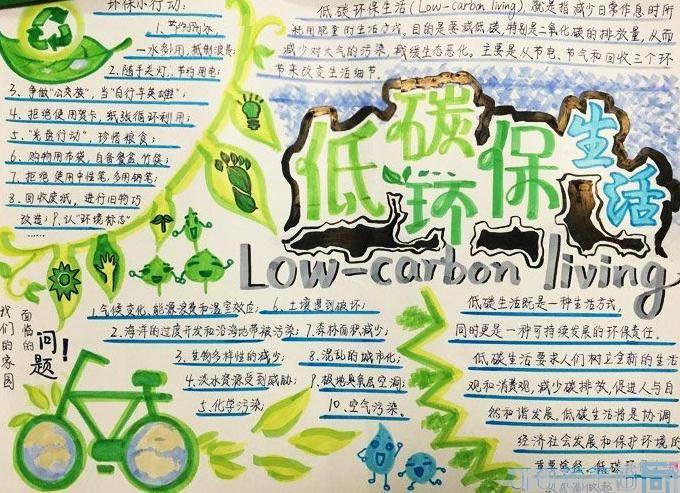 环保小行动:
1、节约用水,
一水多用,抵制浪费;
2、随手关灯,节约用电;
3、争做“公交族”,当“自行车英雄”;
4、拒绝使用贺卡,纸张循环利用;
5、“光盘行动”,珍惜粮食;
6、购物用布袋,自备餐盒,竹筷;
7、拒绝使用中性笔,多用钢笔;
8、回收废纸,进行旧物巧
改造;9、认“环境标志”
……
低碳环保生活(Low-carbon living),就是指减少日常作息时所
耗用能量的生活方式,目的是要减低碳,特别是二氧化碳的排放量,从而
减少对大气的污染,减缓生态恶化。主要是从节电、节气和回收三个环
节来改变生活细节。
低碳环保生活
Low-carbon living
我们的家园
面临的
问题!
1、气候变化、能源浪费和温室效应;
2、海洋的过度开发和沿海地带被污染;
3、生物多样性的减少;
4、淡水资源受到威胁;
5、化学污染;
6、土壤遭到破坏;
7、森林面积减少;
8、混乱的城市化;
9、极地臭氧层空洞;
10、空气污染。
低碳生活既是一种生活方式,
同时更是一种可持续发展的环保责任。
低碳生活要求人们树立全新的生活
观和消费观,减少碳排放,促进人与自
然和谐发展。低碳生活将是协调
经济社会发展和保护环境的
重要途径。低碳